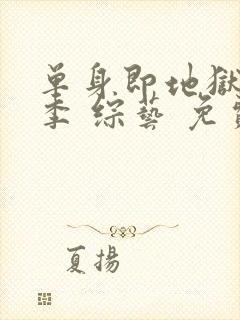 單身即地獄
季 綜藝 免
夏揚